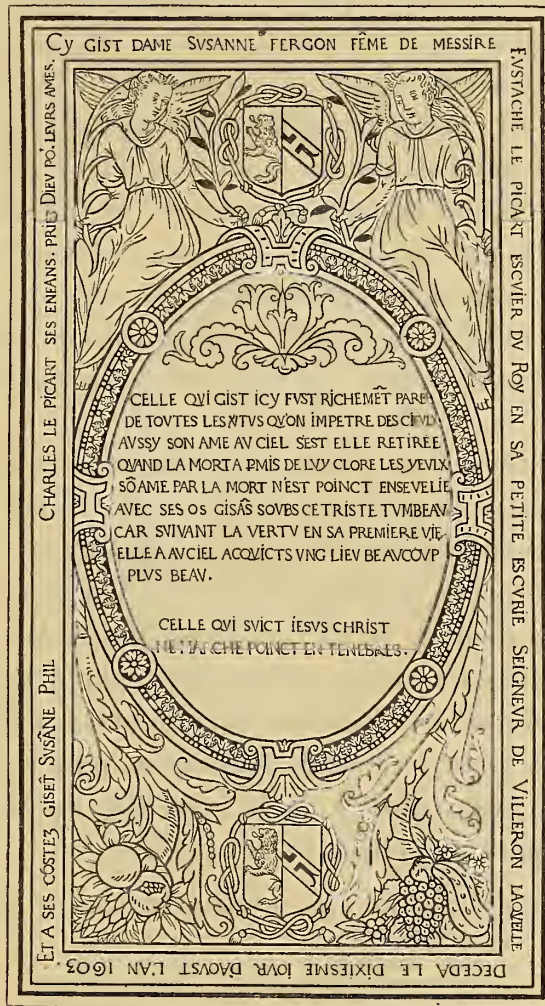 CY GIST DAME SVSANNE FERGON FĒME DE MESSIRE
EVSTACHE LE PICART ESCVIER DV ROY EN SA PETITE ESCVRIE SEIGNEVR DE VILLERON LAQVELLE
DECEDA LE DIXIESME IOVR D'AOVST L'AN 1603
ET A SES COSTEZ GISET SVSĀNE PHIL
CHARLES LE PICART SES ENFANS. PRIE DIEV PO.' LEVRS AMES.
CELLE QVI GIST ICY FVST RICHEMĒT PARE
DE TOVTES LES VTVS QV'ON IMPETRE DES
AVSSY SON AME AV CIEL S'EST ELLE RETIREE
QVAND LA MORT A PMIS DE LVY CLORE LES YEVLX
SŌ AME PAR LA MORT N'EST POINCT ENSEVELIE
AVEC SES OS GISĀS SOVBS CE TRISTE TVMBEAV
CAR SVIVANT LA VERTV EN SA PREMIERE VIE
ELLE A AV CIEL ACQVICTS VNG LIEV BEAVCOVP
PLVS BEAV.
CELLE QVI SVICT IESVS CHRIST
NE MARCHE POINCT EN TENEBRES.